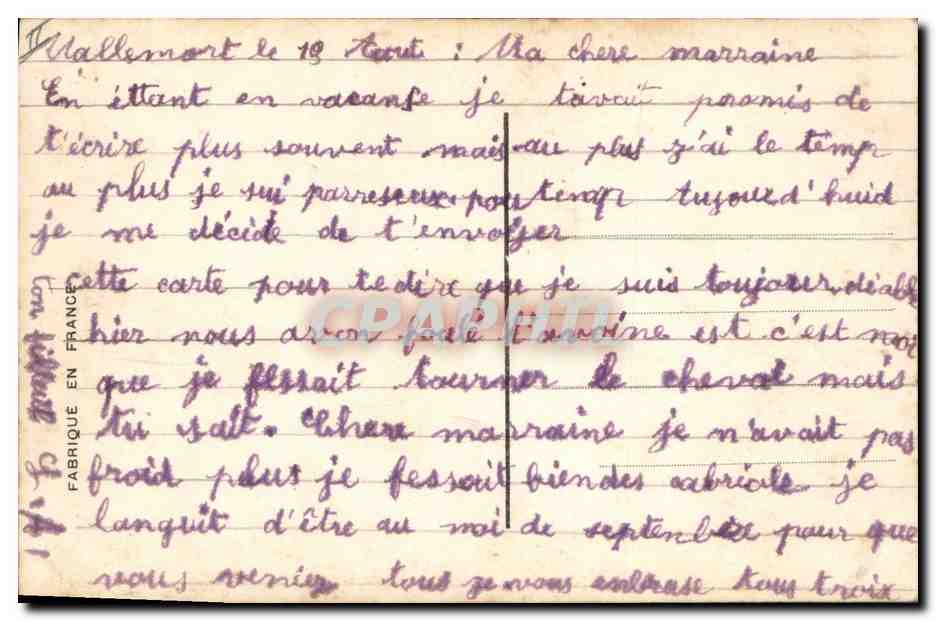 II
Mallemort le 19 Aout : Ma chere marraine
En éttant en vacanse je tavait promis de
t'écrire plus souvent mais au plus j'ai le temp
au plus je sui parreseux. pou temp aujoued'huid
je me décide de t'envoyer
cette carte pour te dire que je suis toujour diable
hier nous avon foulé l'avoine est c'est moi
que je fessait tourner le cheval mais
tu sait. Chere marraine je n'avait pas
froid plus je fessait bien des cabriole je
languit d'être au moi de septenbre pour que
vous veniez tous je vous enbrase tous troix
ton filleul
FABRIQUÉ EN FRANCE
CPAPHIL